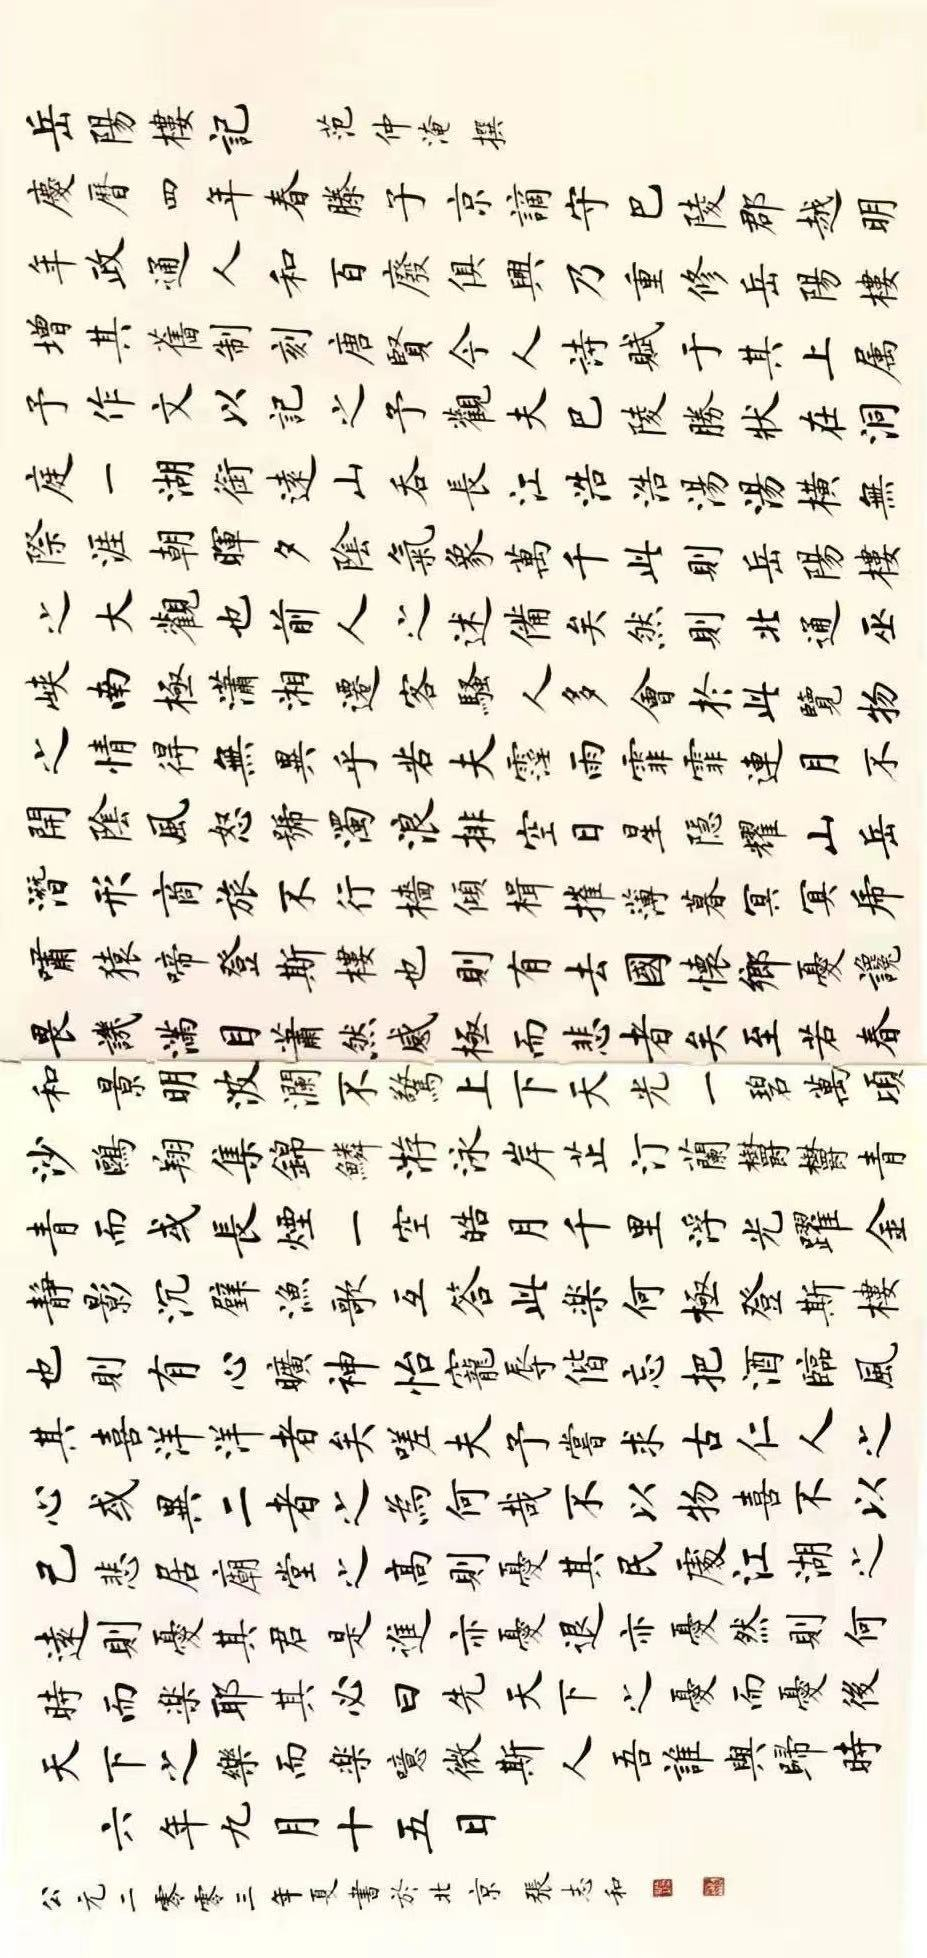 岳陽樓記 范仲淹撰
慶曆四年春滕子京謫守巴陵郡越明
年政通人和百廢俱興乃重修岳陽樓
增其舊制刻唐賢今人詩賦于其上属
予作文以記之予觀夫巴陵勝狀在洞
庭一湖銜遠山吞長江浩浩湯湯橫無
際涯朝暉夕陰氣象萬千此則岳陽樓
之大觀也前人之述備矣然則北通巫
峽南極瀟湘遷客騷人多會於此覽物
之情得無異乎若夫霪雨霏霏連月不
開陰風怒號濁浪排空日星隱耀山岳
潛形商旅不行檣傾楫摧薄暮冥冥虎
嘯猿啼登斯樓也則有去國懷鄉憂讒
畏譏滿目蕭然感極而悲者矣至若春
和景明波瀾不驚上下天光一碧萬頃
沙鷗翔集錦鱗游泳岸芷汀蘭鬱鬱青
青而或長煙一空皓月千里浮光躍金
靜影沉璧漁歌互答此楽何極登斯樓
也則有心曠神怡寵辱偕忘把酒臨風
其喜洋洋者矣嗟夫予嘗求古仁人之
心或異二者之為何哉不以物喜不以
己悲居廟堂之高則憂其民處江湖之
遠則憂其君是進亦憂退亦憂然則何
時而楽耶其必曰先天下之憂而憂後
天下之樂而楽噫微斯人吾誰與歸時
六年九月十五日
公元二零零三年夏書於北京 張志和